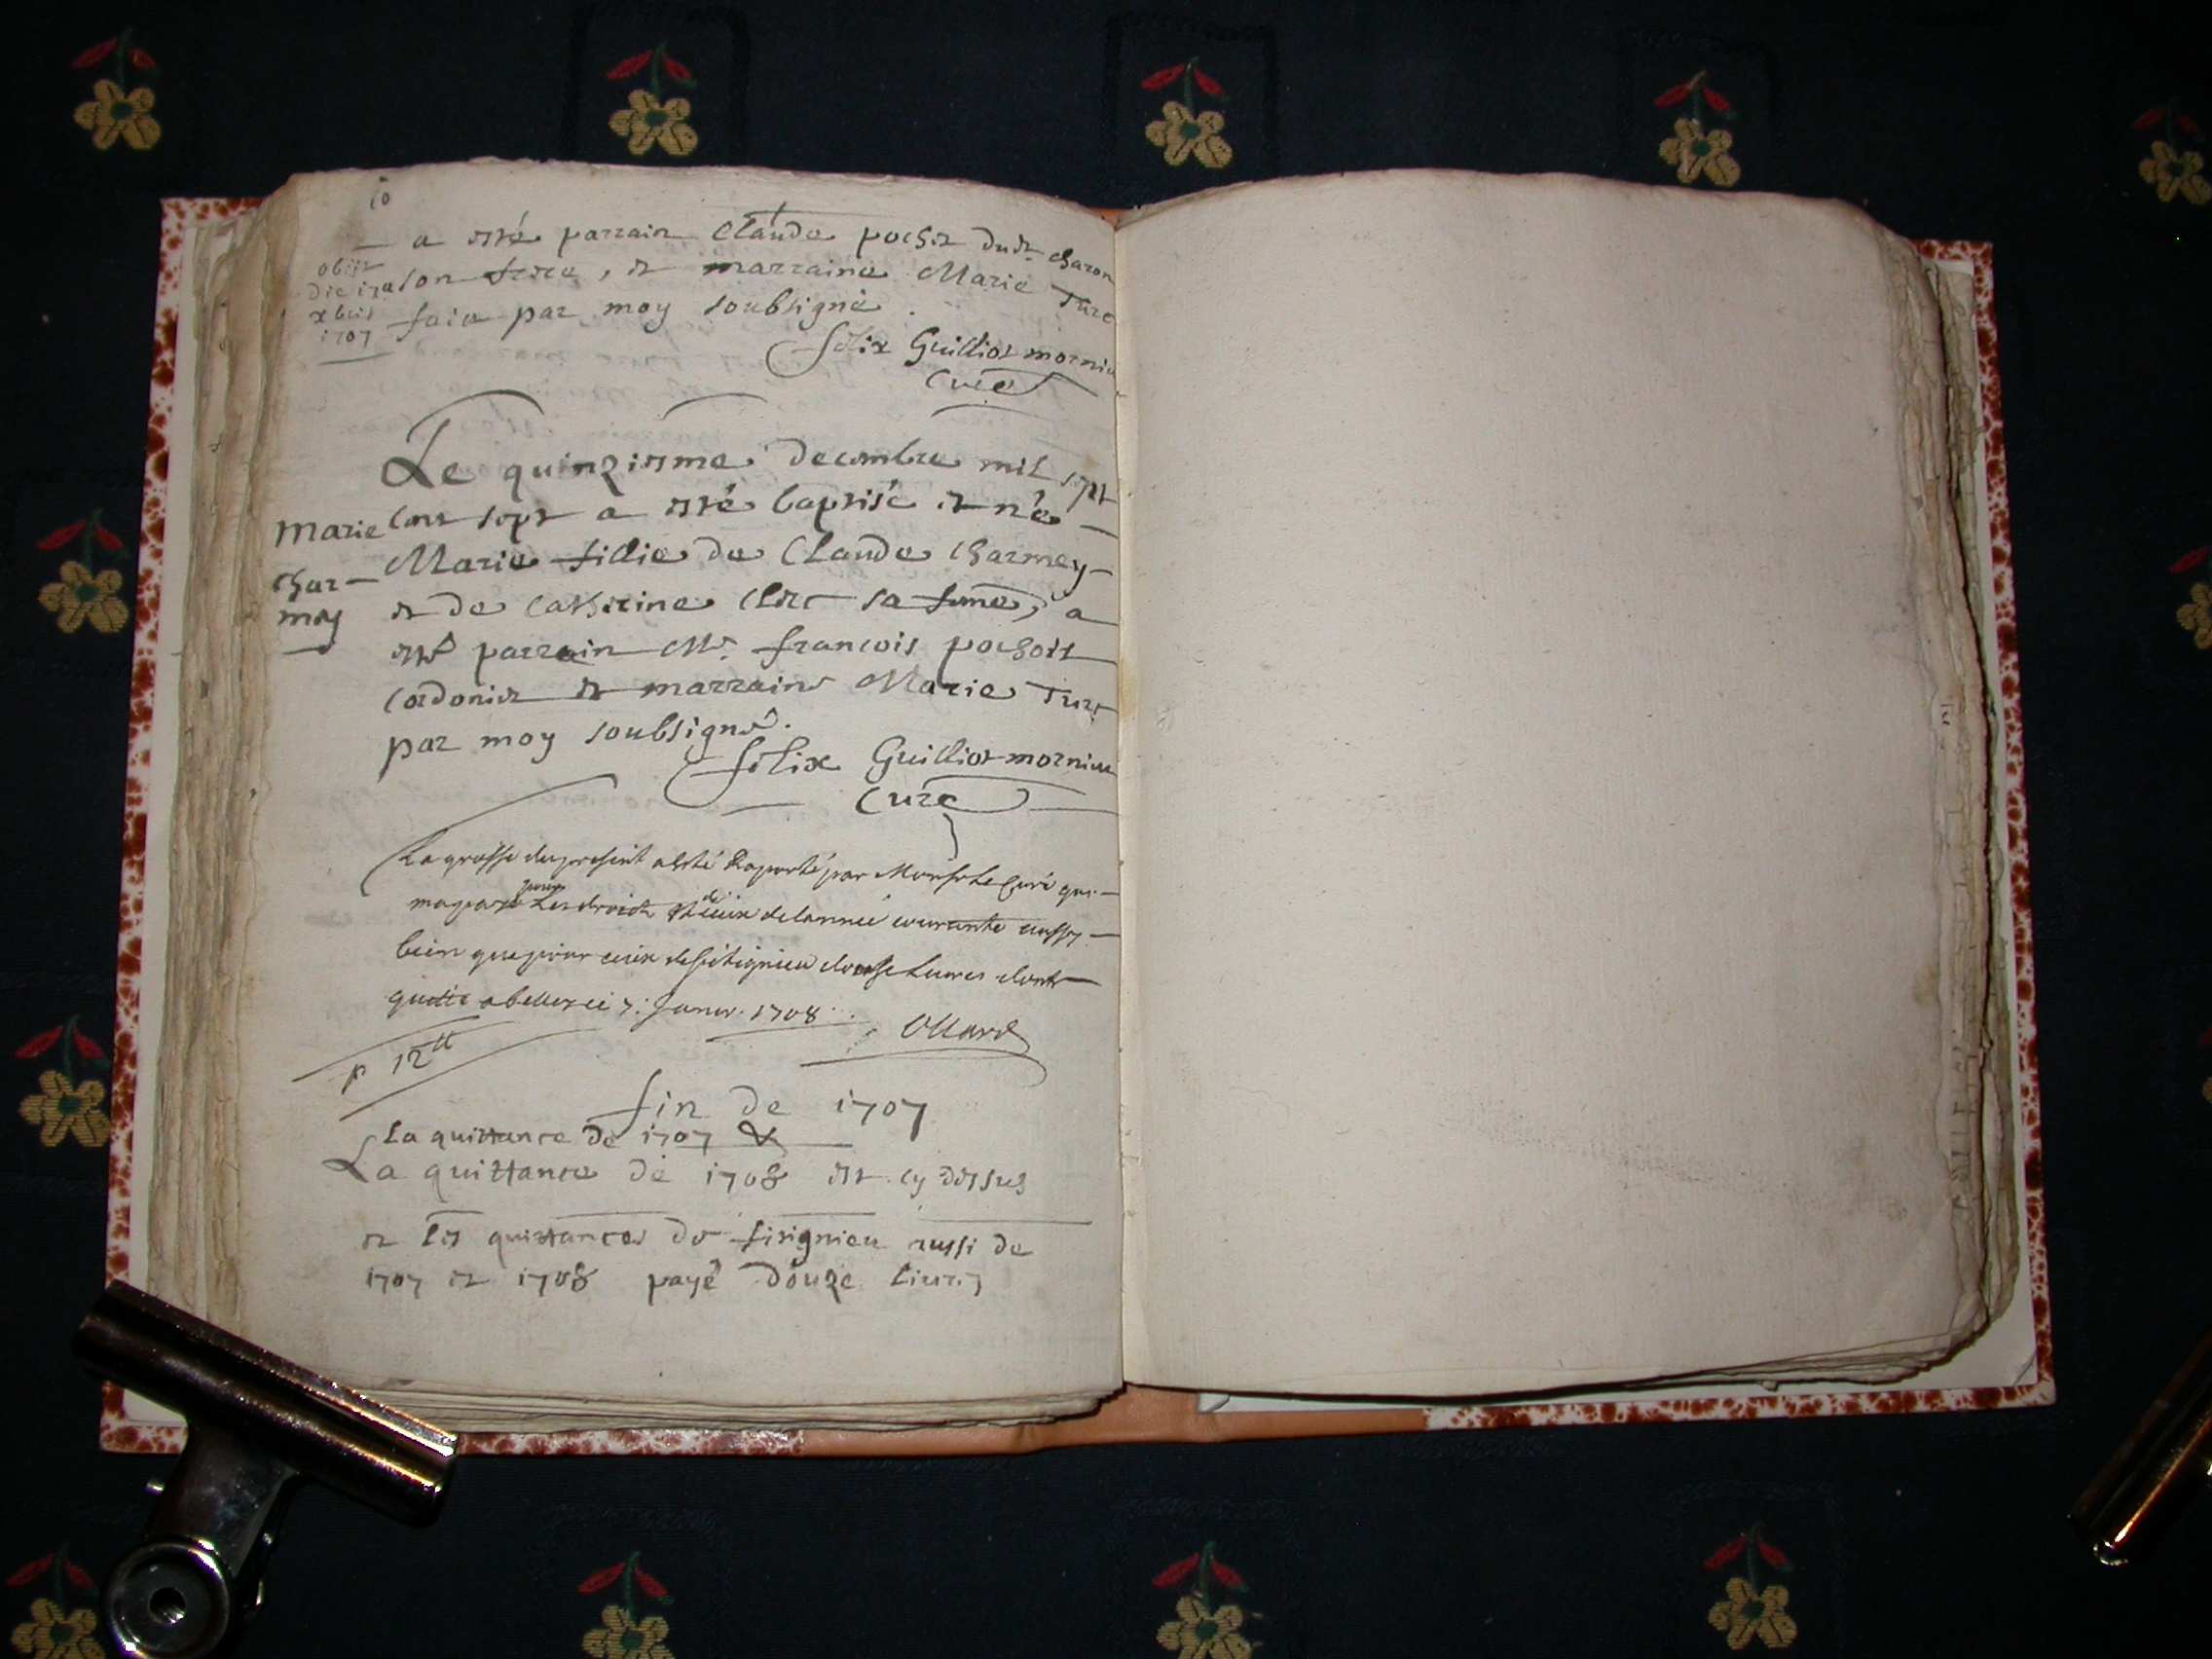 10
a esté parrain Claude pochet dudt. charon
obiit
die 17a
xbris
1707
son frere, et marraine Marie Turc
faict par moy soubsigné.
felix Guilliot mornieu
Curé
Le quinziesme decembre mil sept
Marie
Char-
mey
cent sept a esté baptisée et née
Marie fillie de Claude Charmey
et de Catherine Clerc sa feme, a
esté parrain Mr. francois pochett
Cordonier et marraine Marie Turc
par moy soubsigné.
felix Guilliot mornieu
Curé
La grosse du present a esté Raporté par Monsr Le Curé qui
ma payé pour Les droicts de ceux de lannee courante aussy
bien que pour ceux de douse Livres dont
quitte a belley ce 7: Janvr. 1708
Ollard
p 12tt
fin de 1707
La quittance de 1707 &
La quittance de 1708 est cy dessus
et les quittances de fitignieu aussi de
1707 et 1708 payé douze livres